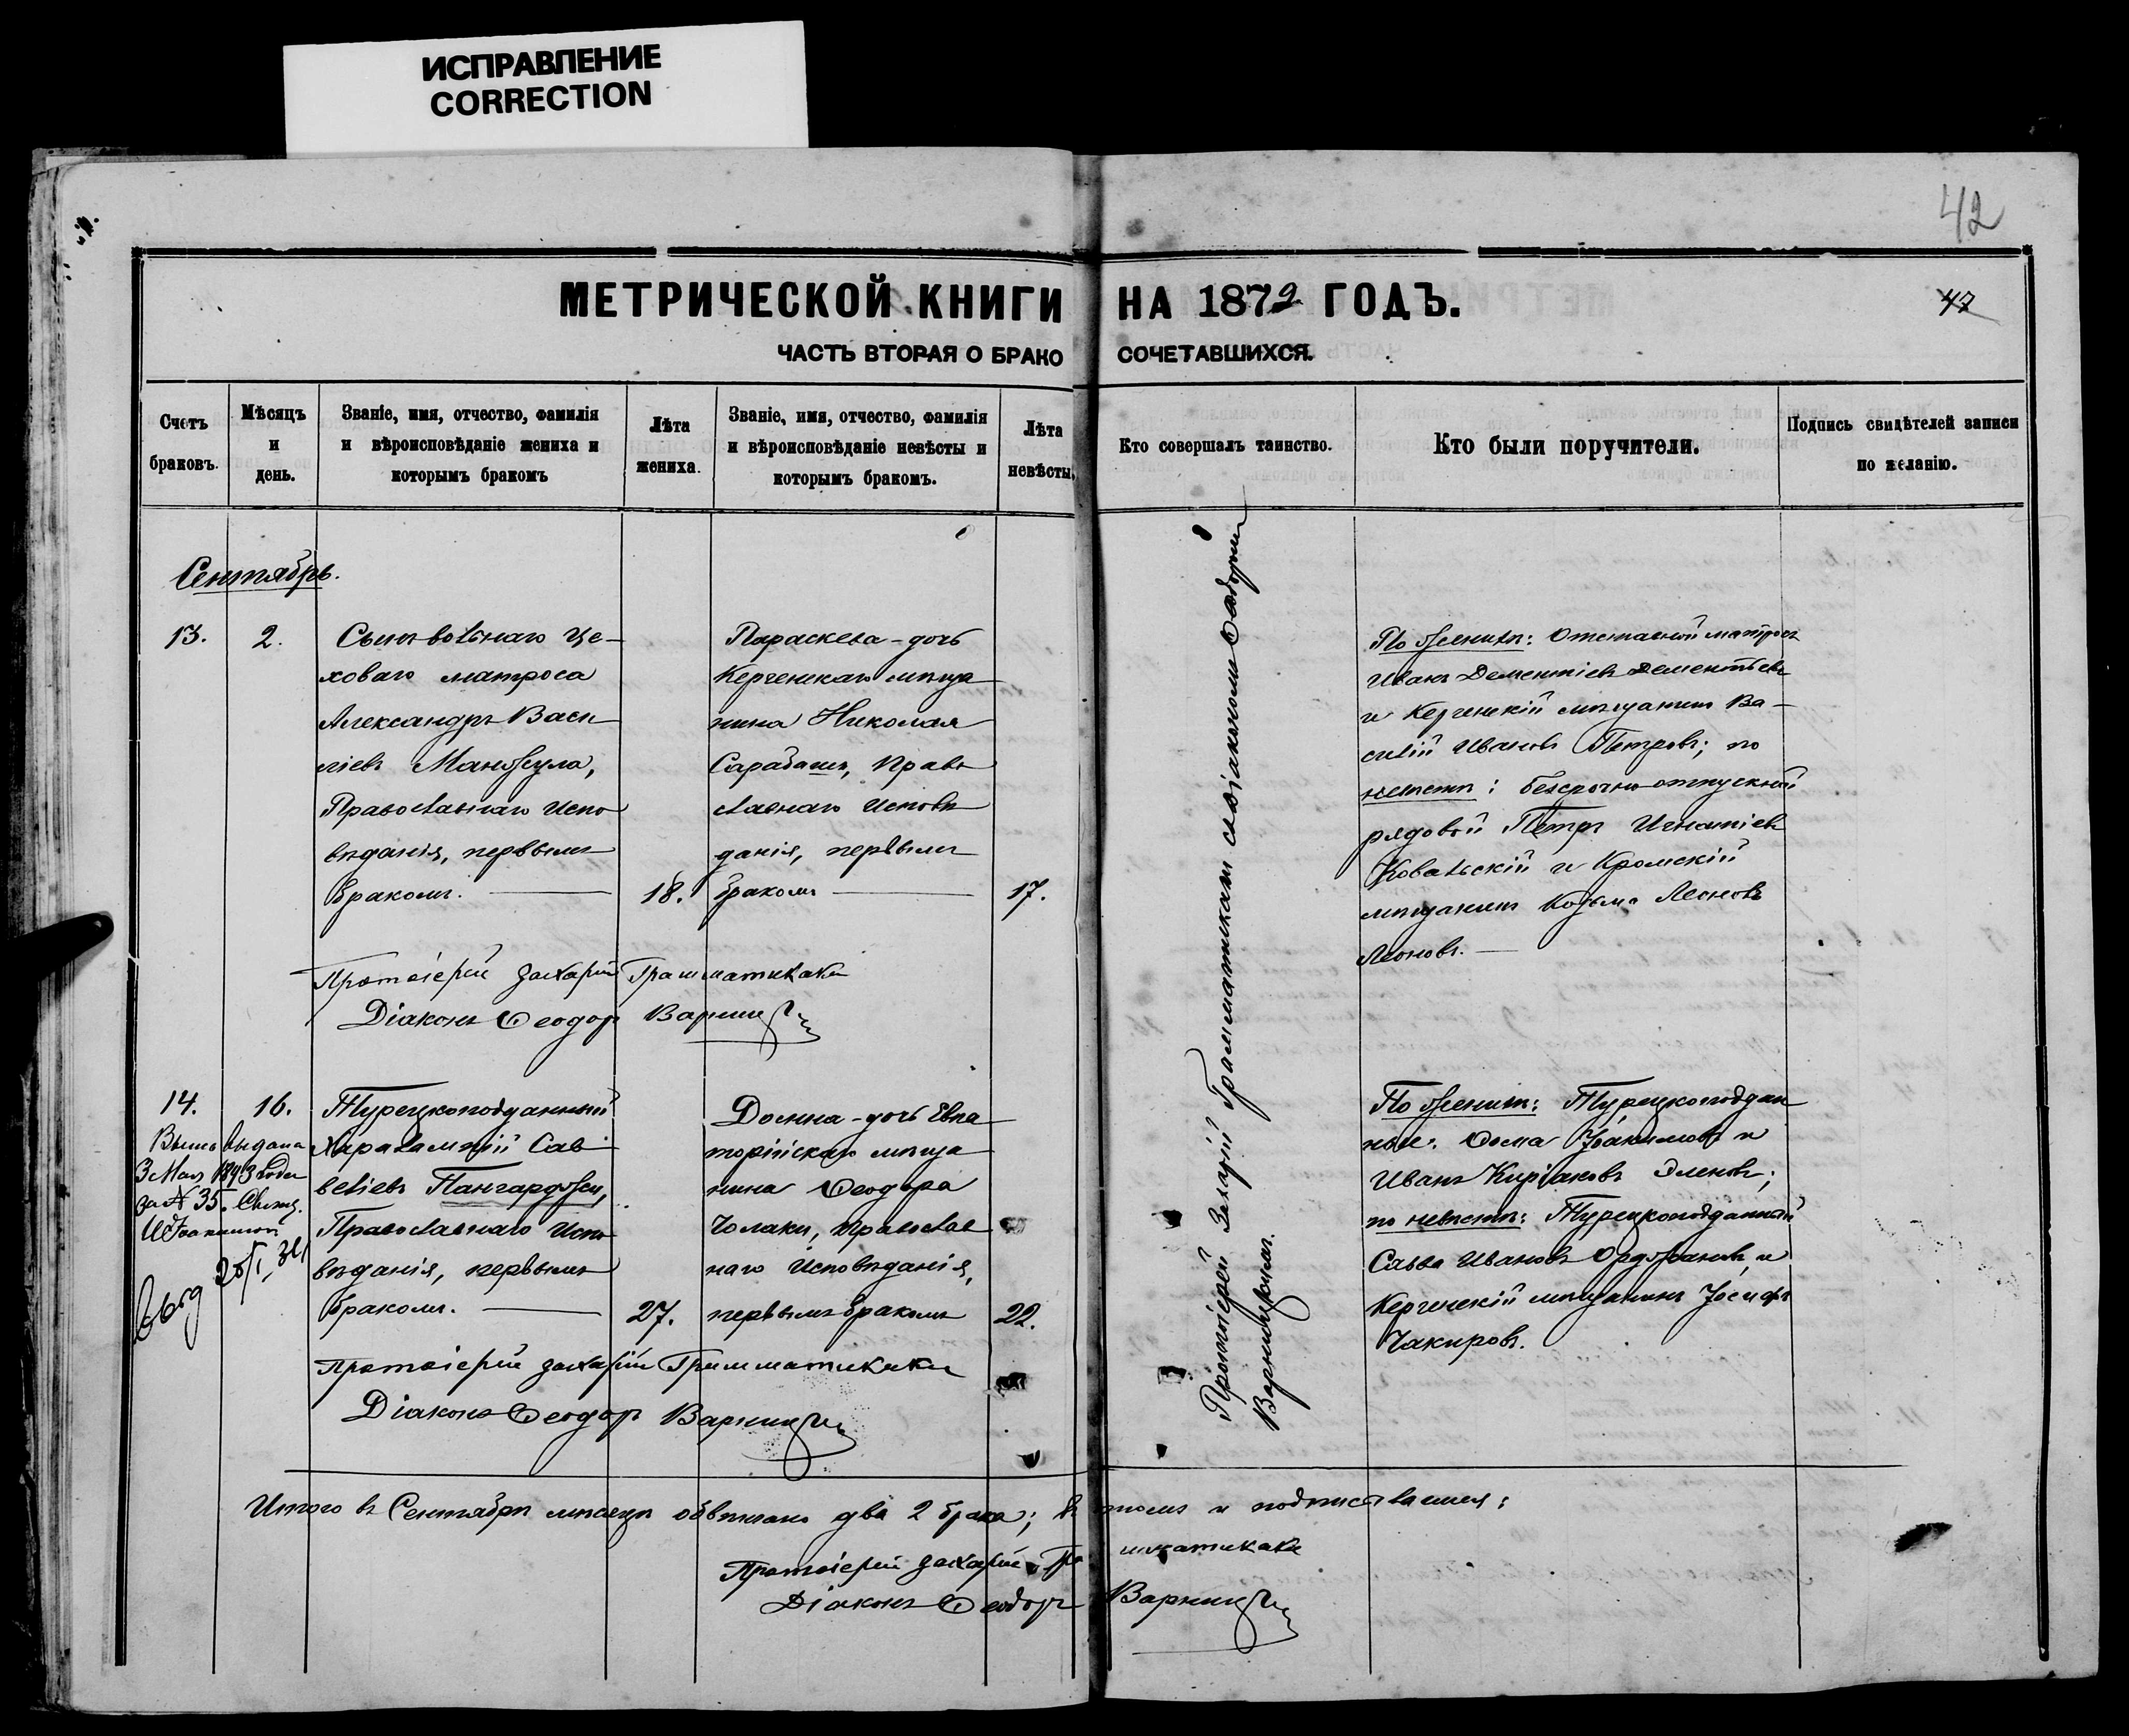 ИСПРАВЛЕНИЕ
CORRECTION
42
МЕТРИЧЕСКОЙ КНИГИ НА 1879 ГОДЪ.
42
ЧАСТЬ ВТОРАЯ О БРАКОСОЧЕТАВШИХСЯ.
Счетъ браковъ.
Мѣсяцъ и день.
Званіе, имя, отчество, фамилія
и вѣроисповѣданіе жениха и
которымъ бракомъ
Лѣта жениха.
Званіе, имя, отчество, фамилія
и вѣроисповѣданіе невѣсты и
которымъ бракомъ.
Лѣта невѣсты.
Кто совершалъ таинство.
Кто были поручители.
Подпись свидѣтелей записи
по желанію.
Сентябрь.
13.
2.
Сынъ вольнаго це-
ховаго матроса
Александръ Васи
ліевъ Манжула,
Православнаго Испо
вѣданія, первымъ
бракомъ.
18.
Параскева - дочь
Керченскаго мѣща
нина Николая
Сарабашъ, Право
славнаго Исповѣ
данія, первымъ
бракомъ
17.
По женихѣ: Отставной матросъ
Иванъ Дементіевъ Дементьевъ
и Керченскій мѣщанинъ Ва-
силій Ивановъ Петровъ; по
невѣстѣ: безсрочно-отпускный
рядовой Петръ Игнатіевъ
Ковальскій и Кромскій
мѣщанинъ Козьма Леоновъ
Леоновъ.
Протоіерей Захарій Грамматикаки
Діаконъ Ѳеодоръ Варницкій
14.
16.
Выпись выдана
3 Мая 1893 года
за № 35. Свящ.
Турецкоподданный
Харалампій Сав
веліевъ Пангарджи,
Православнаго Испо
вѣданія, первымъ
бракомъ.
27.
Домна - дочь Евпа
торійскаго мѣща
нина Ѳеодора
Чолаки, православ
наго Исповѣданія,
первымъ бракомъ
22.
По женихѣ: Турецкоподдан
ные: Ѳома Іоакимовъ и
Иванъ Киріаковъ Эленовъ;
по невѣстѣ: Турецкоподданный
Савва Ивановъ Орджановъ и
Керченскій мѣщанинъ Іосифъ
Чакировъ.
Протоіерей Захарій Грамматикаки
Діаконъ Ѳеодоръ Варницкій
Протоіерей Захарій Грамматикаки съ діакономъ Ѳеодоромъ
Варницкимъ.
Итого въ Сентябрѣ мѣсяцѣ обвѣнчано два 2 брака; въ томъ и подписываемся:
Протоіерей Захарій Грамматикаки
Діаконъ Ѳеодоръ Варницкій